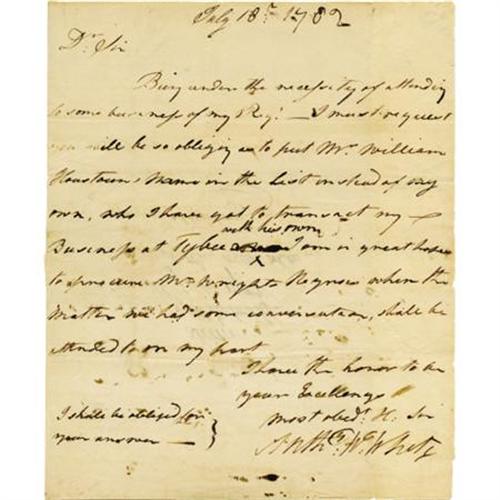 July 18th 1782
Dr Sir
Being under the necessity of attending
to some business of my Regt — I must request
you will be so obliging as to put Mr. William
Houstoun's Name in the list instead of my
own, who I have got to transact my
with his own
Business at Tybee I am in great hopes
to procure Mr. Wright's Negroes when the
Matter we had some conversation, shall be
attended to on my part
I have the honor to be
your Excellency's
most obedt. H. Sr
Anthy. Wn. White
I shall be obliged for
your answer —